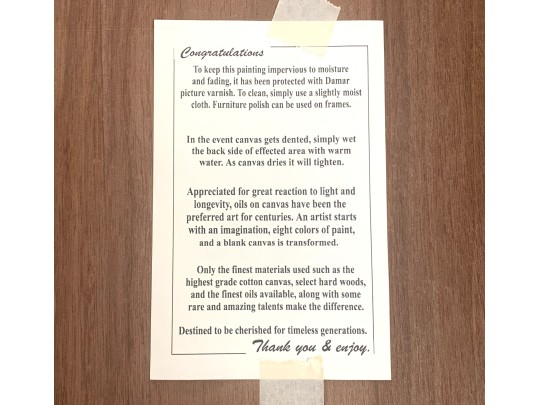 Congratulations
To keep this painting impervious to moisture
and fading, it has been protected with Damar
picture varnish. To clean, simply use a slightly moist
cloth. Furniture polish can be used on frames.
In the event canvas gets dented, simply wet
the back side of effected area with warm
water. As canvas dries it will tighten.
Appreciated for great reaction to light and
longevity, oils on canvas have been the
preferred art for centuries. An artist starts
with an imagination, eight colors of paint,
and a blank canvas is transformed.
Only the finest materials used such as the
highest grade cotton canvas, select hard woods,
and the finest oils available, along with some
rare and amazing talents make the difference.
Destined to be cherished for timeless generations.
Thank you & enjoy.